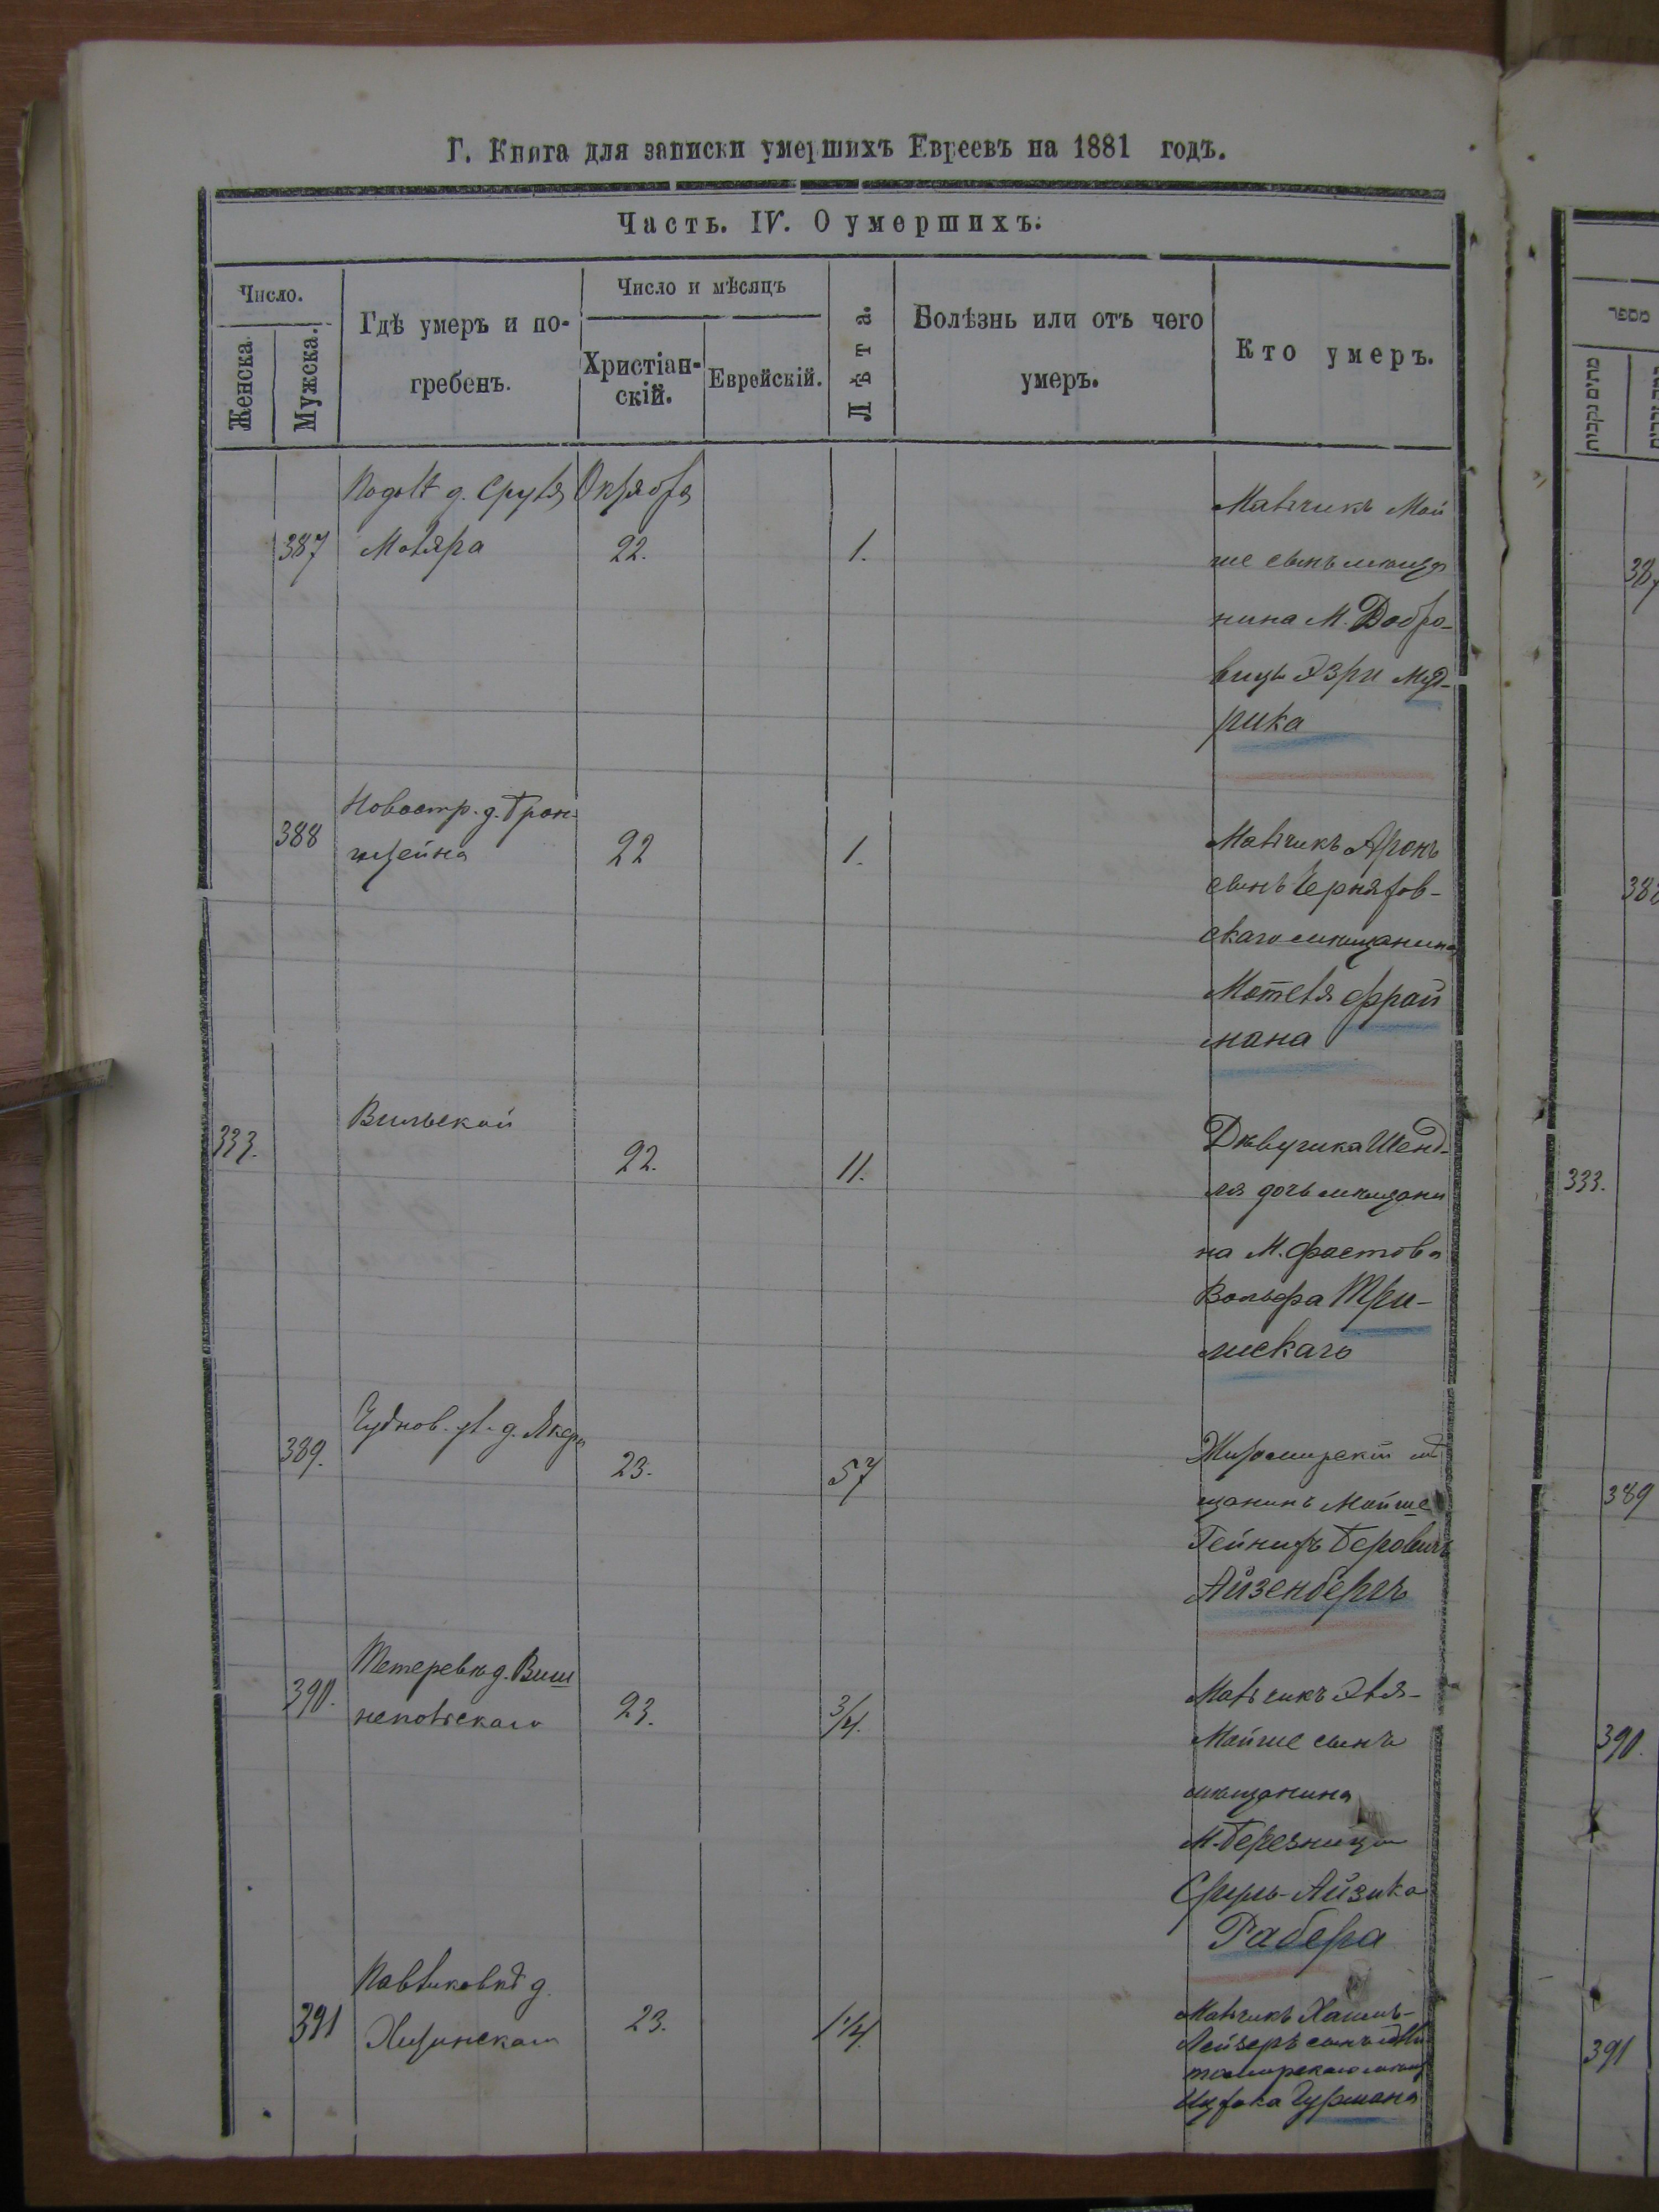 Г. Книга для записки умершихъ Евреевъ на 1881 годъ.
Часть. IV. О умершихъ.
Число.
Женска.
Мужска.
Гдѣ умеръ и по-
гребенъ.
Число и мѣсяцъ
Христіан-
скій.
Еврейскій.
Лѣта.
Болѣзнь или отъ чего
умеръ.
Кто умеръ.
Подолъ д. Сруля Октября
387 Моляра 22. 1.
Мальчикъ Мой
ше сынъ мѣща
нина М. Добро-
вицы Эзри Муд-
рика
388 Новостр. д. Брон-
штейна 22 1.
Мальчикъ Аронъ
сынъ Черняхов-
скаго мѣщанина
Мотеля Фрай
мана
333. Вильской 22. 11.
Дѣвушка Шенд-
ля дочь мѣщани
на М. Фастова
Вольфа Три-
лискаго
389. Чуднов. ул. д. 23. 57
Житомирскій мѣ
щанинъ Мойше
Гейнихъ Беровичъ
Айзенбергъ
390. Тетеревкѣ д. Виш
непольскаго 23. 3/4.
Мальчикъ Эля-
Мойше сынъ
мѣщанина
М. Березницы
Сруль-Айзика
Рабера
Павликовкѣ д.
391 23. 1 1/4.
Мальчикъ Хаимъ-
Лейзеръ сынъ Жи
томирскаго мѣщ
Ицхока Гурмана
מספר
מתים נקבות
387
388
333.
389
390.
391